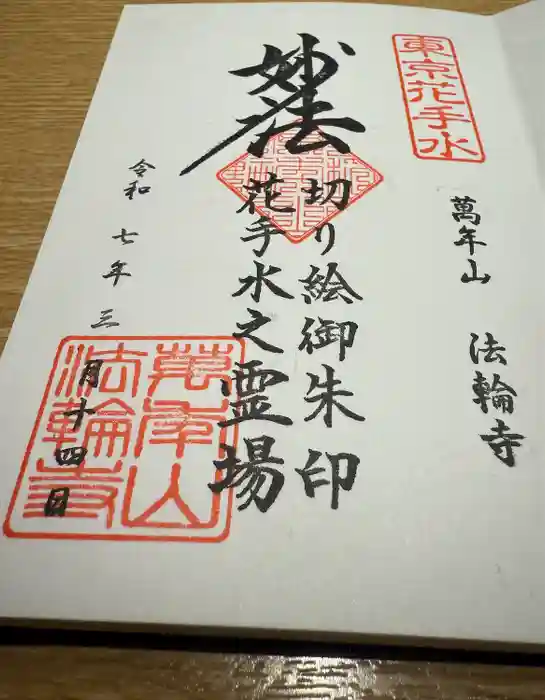 東京花手水
萬年山 法輪寺
妙法
切り絵御朱印
花手水之霊場
令和 七年 三月十四日
萬年山
法輪寺